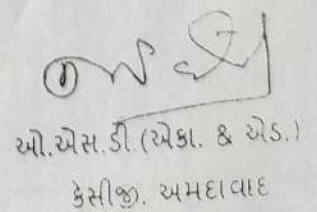 ઓ.એસ.ડી. (એકા. & એડ.)
કેસીજી. અમદાવાદ